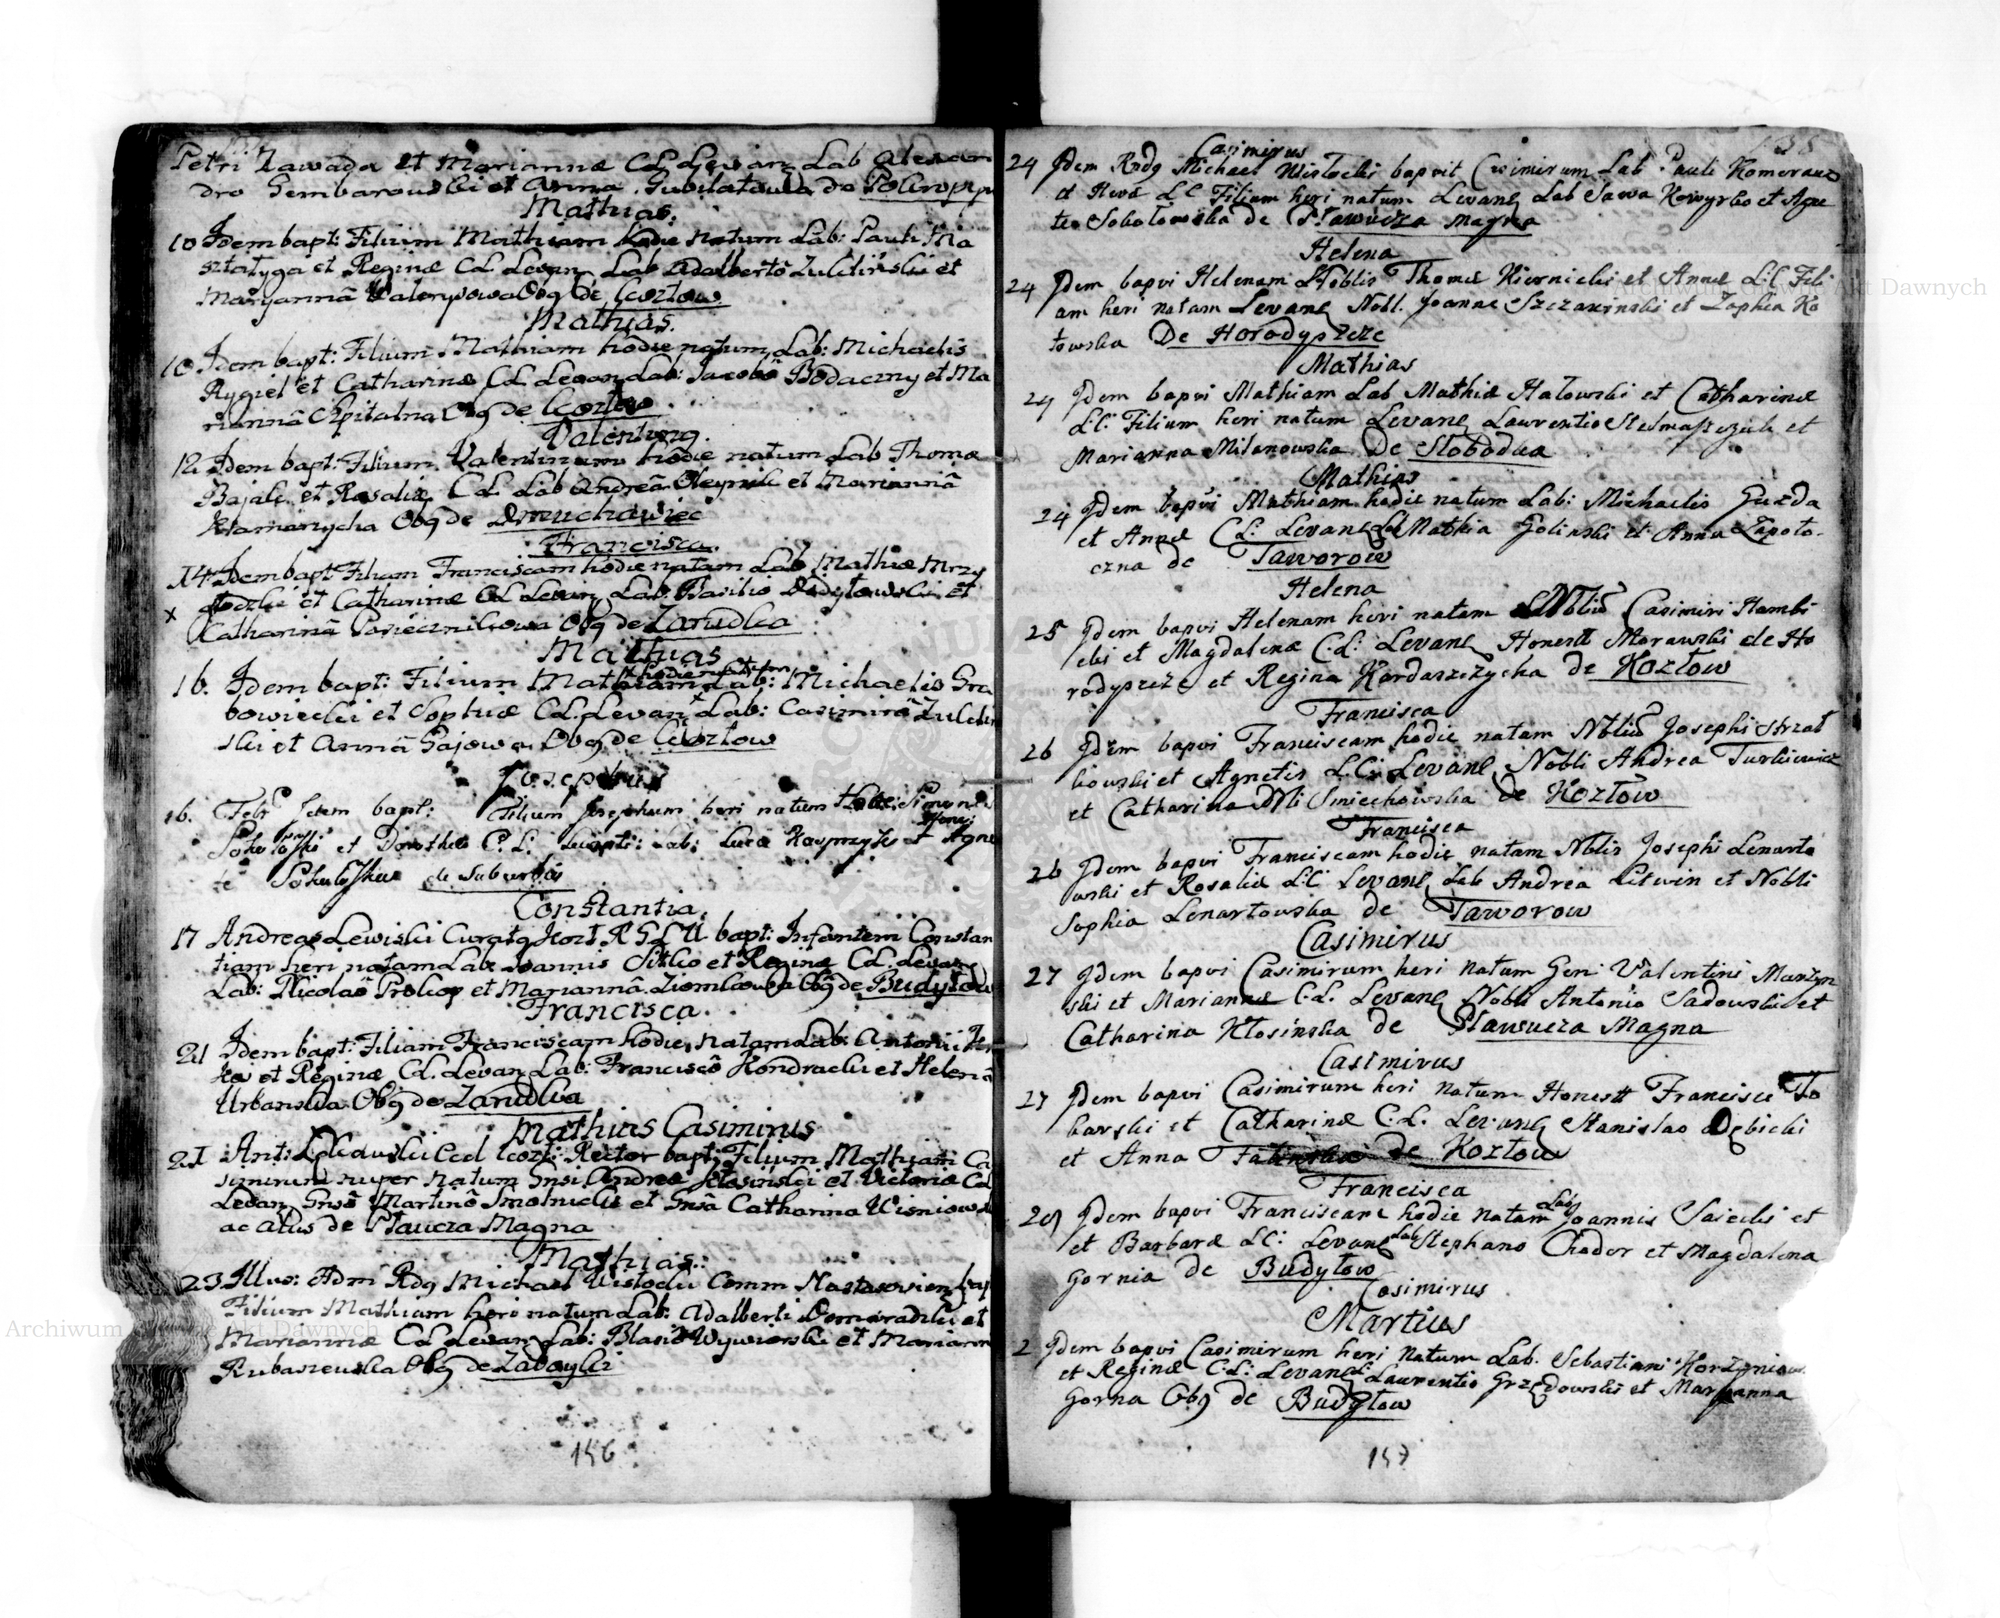 Petri Zawada et Mariannæ CL Levan Lab Alexan
dro Gembarowski et Anna de
Mathias.
10 Idem bapt: Filium Mathiam hodie natum Lab: Pauli Ma
sztalyga et Reginæ CL Levan Lab Adalbertô Zulclinski et
Maryannâ Walerysowa Obq de Cozlow
Mathias.
10 Idem bapt: Filium Mathiam hodie natum Lab: Michaelis
Rygiel et Catharinæ CL Levan Lab: Jacobô Bodaczny et Ma
riannâ Szpitalna Obq de Cozlow
Valentinq.
12 Idem bapt: Filium Valentinum hodie natum Lab Thomæ
Bajak et Rosaliæ CL Lab Andreâ Oleynik et Mariannâ
Hamanycha Obq de Dmuchawiec
Francisca.
14 Idem bapt Filiam Franciscam hodie natam Lab Mathiæ Mrzy
x et Catharinæ CL Levan Lab: Basilio Dedylowski et
Catharinâ Pasiecznikowa Obq de Zarudka
Mathias
hodie natum
16. Idem bapt: Filium Mathiam Lab: Michaelis Gra
bowiecki et Sophiæ CL Levan Lab: Casimirô Zulclin
ski et Annâ Gajowa Obq de Cozlow
Josephus
16. Febr Idem bapt: Filium Josephum heri natum Simonis
et Dorotheæ C. L. Lab: Luca Kasprzyk et Agne
te de Suburbis
Constantia.
17 Andreas Lewiski Curatq Kozl R G L U bapt: Infantem Constan
tiam heri natam Lab: Ioannis et Reginæ CL Levan
Lab: Nicolaô Prokop et Mariannâ Ziomkowa Obq de Budylow
Francisca.
21 Idem bapt: Filiam Franciscam hodie natam Lab: Antonii
ko et Reginæ CL Levan Lab: Franciscô Kondracki et Helenâ
Urbanska Obq de Zarudka
Mathias Casimirus
21 Ant: Ccl Cozl: Rector bapt: Filium Mathiam Ca
simirum nuper natum Gnsi Andreæ Klosinski et Victoriæ CL
Levan Gnsô Martinô Smolnicki et Gnsâ Catharina Wisniowsk
ac aliis de Plaucza Magna
Mathias.
23 Illus: Adm Rdq Michael Wistocki Comm Nastasovien bap
Filium Mathiam heri natum Lab: Adalberti Domaradzki et
Mariannæ CL Levan Lab: Blasiô Wywiorski et Mariann
Rubaszewska Obq de Zaboyki
156
Casimirus
24 Idem Rndq Michael Wistocki bapvit Casimirum Lab Pauli Komoraus
et Hevæ L C Filium heri natum Levanq Lab Sawa Kowyrko et Agne
te Sobotowska de Plawucza Magna
Helena
24 Idem bapvi Helenam Noblis Thomæ Kiernicki et Annæ L: C Fili
am heri natam Levanq Nobl. Joanne Szczawinski et Zophia Ko
towska De Horodyszcze
Mathias
24 Idem bapvi Mathiam Lab Mathiæ Hatowski et Catharinæ
L: C: Filium heri natum Levanq Laurentio Stelmaszczuk et
Marianna Milanowska De Slobodka
Mathias
24 Idem bapvi Mathiam hodie natum Lab: Michaelis Guzda
et Annæ C. L: Levanq Lab Mathia Golinski et Anna Zapoto-
czna de Taworow
Helena
25 Idem bapvi Helenam heri natam Nbliũ Casimiri Hambi
cki et Magdalenæ C: L: Levanq Honestt Morawski de Ho
rodyszcze et Regina Kardaszczycha de Kozlow
Francisca
26 Idem bapvi Franciscam hodie natam Nbliũ Josephi Strzal
kowski et Agnetis L: C: Levanq Nobli Andrea Turkiewicz
et Catharina Nbli Smiechowska de Kozlow
Francisca
26 Idem bapvi Franciscam hodie natam Nblis Josephi Lenarto
wski et Rosaliæ L: C: Levanq Lab Andrea Litwin et Nobli
Sophia Lenartowska de Taworow
Casimirus
27 Idem bapvi Casimirum heri natum Geni Valentini Martyn
ski et Mariannæ C. L. Levanq Nobli Antonio Sadowski et
Catharina Klosinska de Plawucza Magna
Casimirus
27 Idem bapvi Casimirum heri natum Honestt Francisci To
karski et Catharinæ C. L. Levanq Stanislao Dębicki
et Anna de Kozlow
Francisca
Lab
28 Idem bapvi Franciscam hodie natam Joannis Saiecki et
et Barbaræ L C: Levanq Lab Stephano Chodor et Magdalena
Gornia de Budylow
Casimirus
Martius
2 Idem bapvi Casimirum heri natum Lab. Sebastiani Korzeniow
et Reginæ C: L: Levanq Laurentio Grzędowski et Maryanna
Gorna Obq de Budylow
157
Archiwum Główne Akt Dawnych